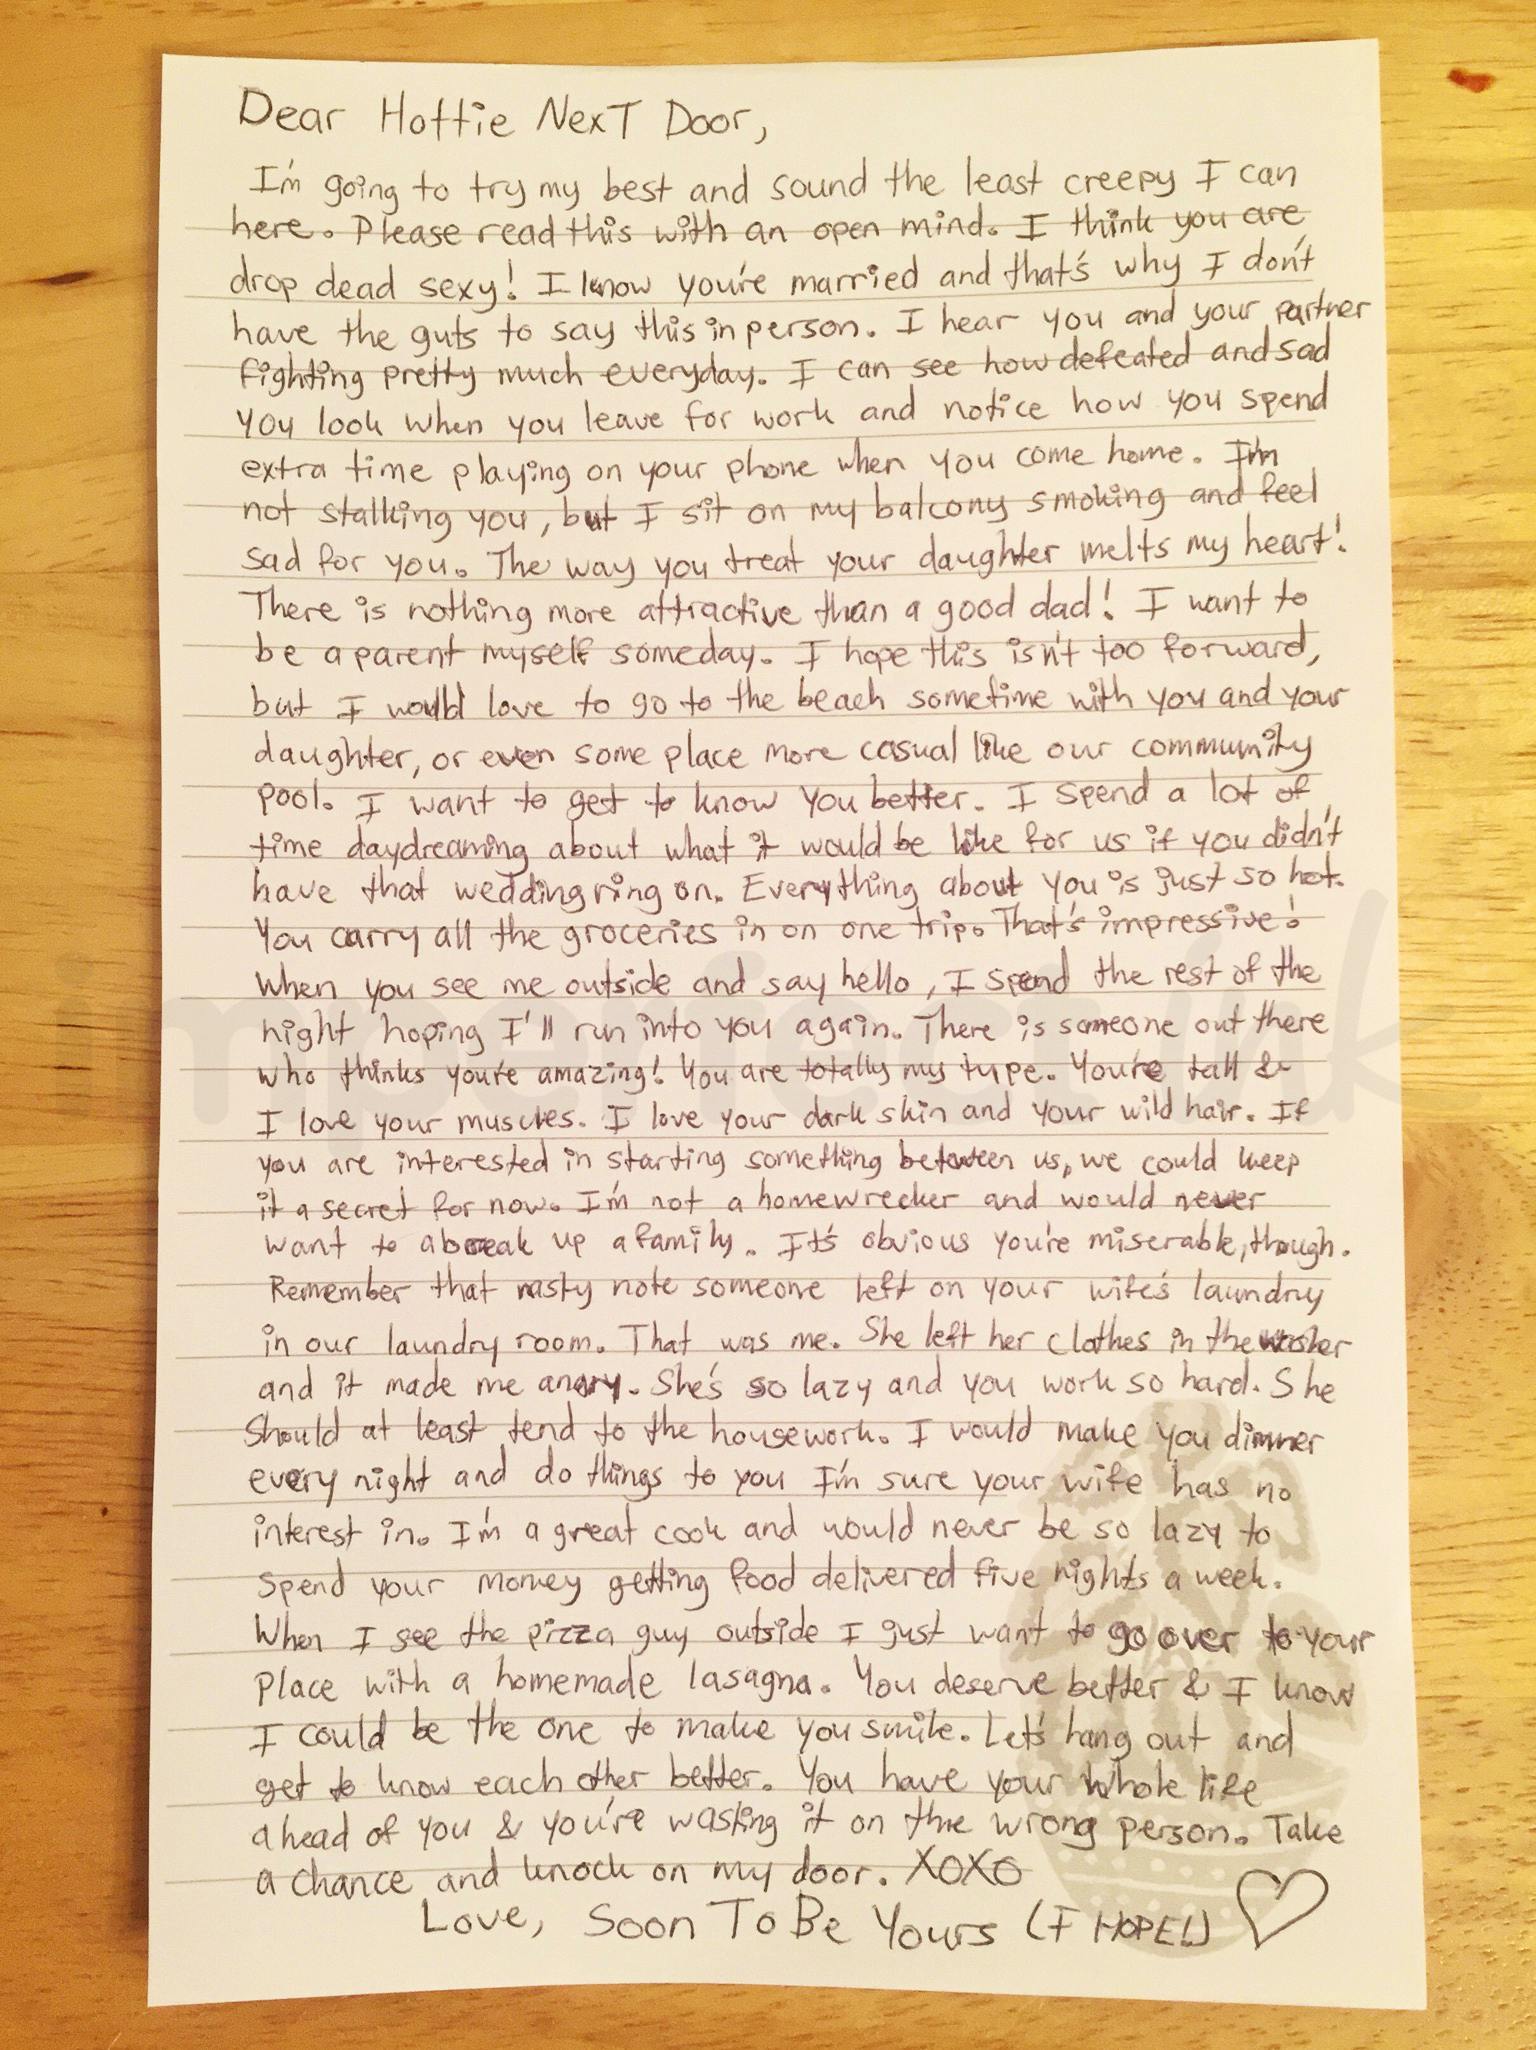 Dear Hottie Next Door,
I'm going to try my best and sound the least creepy I can
here. Please read this with an open mind. I think you are
drop dead sexy! I know you're married and that's why I don't
have the guts to say this in person. I hear you and your partner
fighting pretty much everyday. I can see how defeated and sad
you look when you leave for work and notice how you spend
extra time playing on your phone when you come home. I'm
not stalking you, but I sit on my balcony smoking and feel
sad for you. The way you treat your daughter melts my heart!
There is nothing more attractive than a good dad! I want to
be a parent myself someday. I hope this isn't too forward,
but I would love to go to the beach sometime with you and your
daughter, or even some place more casual like our community
pool. I want to get to know you better. I spend a lot of
time daydreaming about what it would be like for us if you didn't
have that wedding ring on. Everything about you is just so hot.
You carry all the groceries in on one trip. That's impressive!
When you see me outside and say hello, I spend the rest of the
night hoping I'll run into you again. There is someone out there
who thinks you're amazing! You are totally my type. You're tall &
I love your muscles. I love your dark skin and your wild hair. If
you are interested in starting something between us, we could keep
it a secret for now. I'm not a homewrecker and would never
want to abreak up a family. It's obvious you're miserable, though.
Remember that nasty note someone left on your wife's laundry
in our laundry room. That was me. She left her clothes in the washer
and it made me angry. She's so lazy and you work so hard. She
should at least tend to the housework. I would make you dinner
every night and do things to you I'm sure your wife has no
interest in. I'm a great cook and would never be so lazy to
spend your money getting food delivered five nights a week.
When I see the pizza guy outside I just want to go over to your
place with a homemade lasagna. You deserve better & I know
I could be the one to make you smile. Let's hang out and
get to know each other better. You have your whole life
ahead of you & you're wasting it on the wrong person. Take
a chance and knock on my door. XOXO
Love, Soon To Be Yours (I HOPE!)